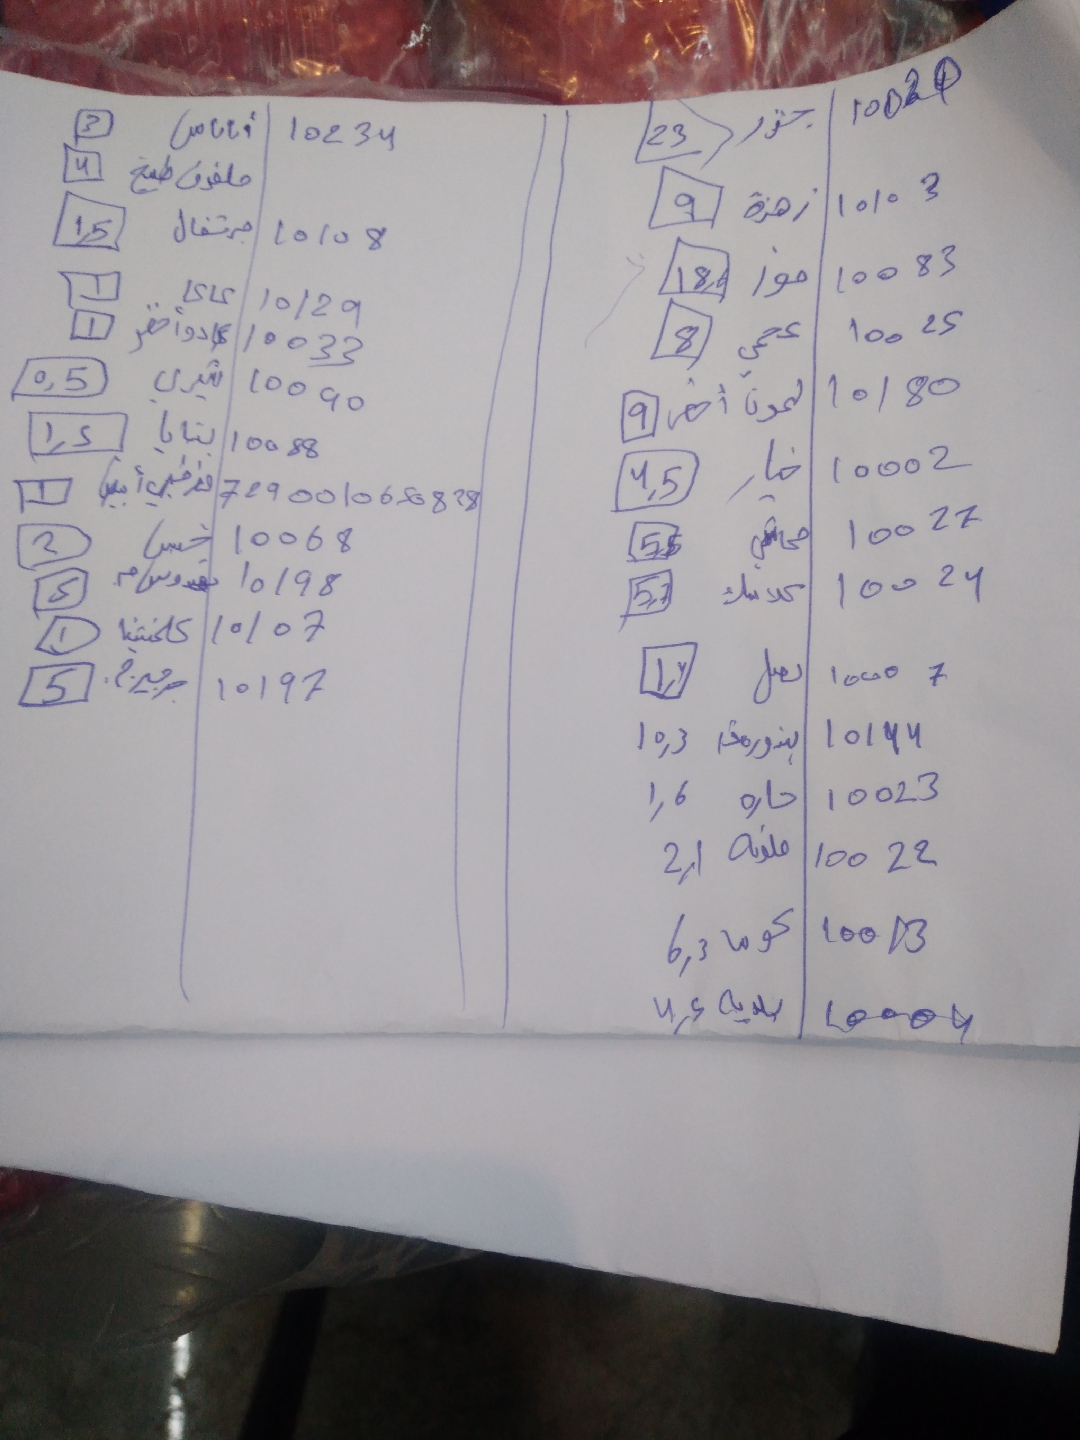 جزر 23
زهرة 10103 9
موز 10083 18,4
عجمي 10025 8
ليمون أخضر 10180 9
خيار 10002 4,5
محاشي 10027
10024
بصل 10007 1,4
بندورة 10144 10,3
حاره 10023 1,6
ملونه 10022 2,1
كوسا 10013 6,3
بلديه 10004 4,5
أناناس 10234 3
ملفوف طبخ 4
برتقال 10108 1,5
كاكا 10129 1
أخضر 10033 1
شيري 10090 0,5
بتاتا 10088 1,5
أبيض 7290010656828 1
خس 10068 2
بقدونس 10198 5
10107 1
جرجير 10197 5